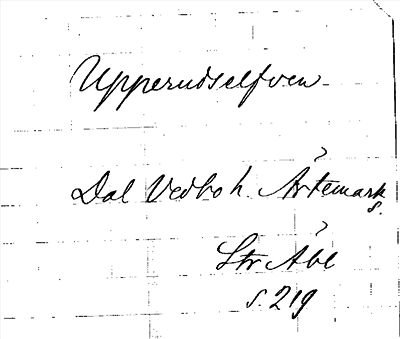 Upperudselfven
Dal Vedbo h. Ärtemark s.
Str Åbl
s. 219